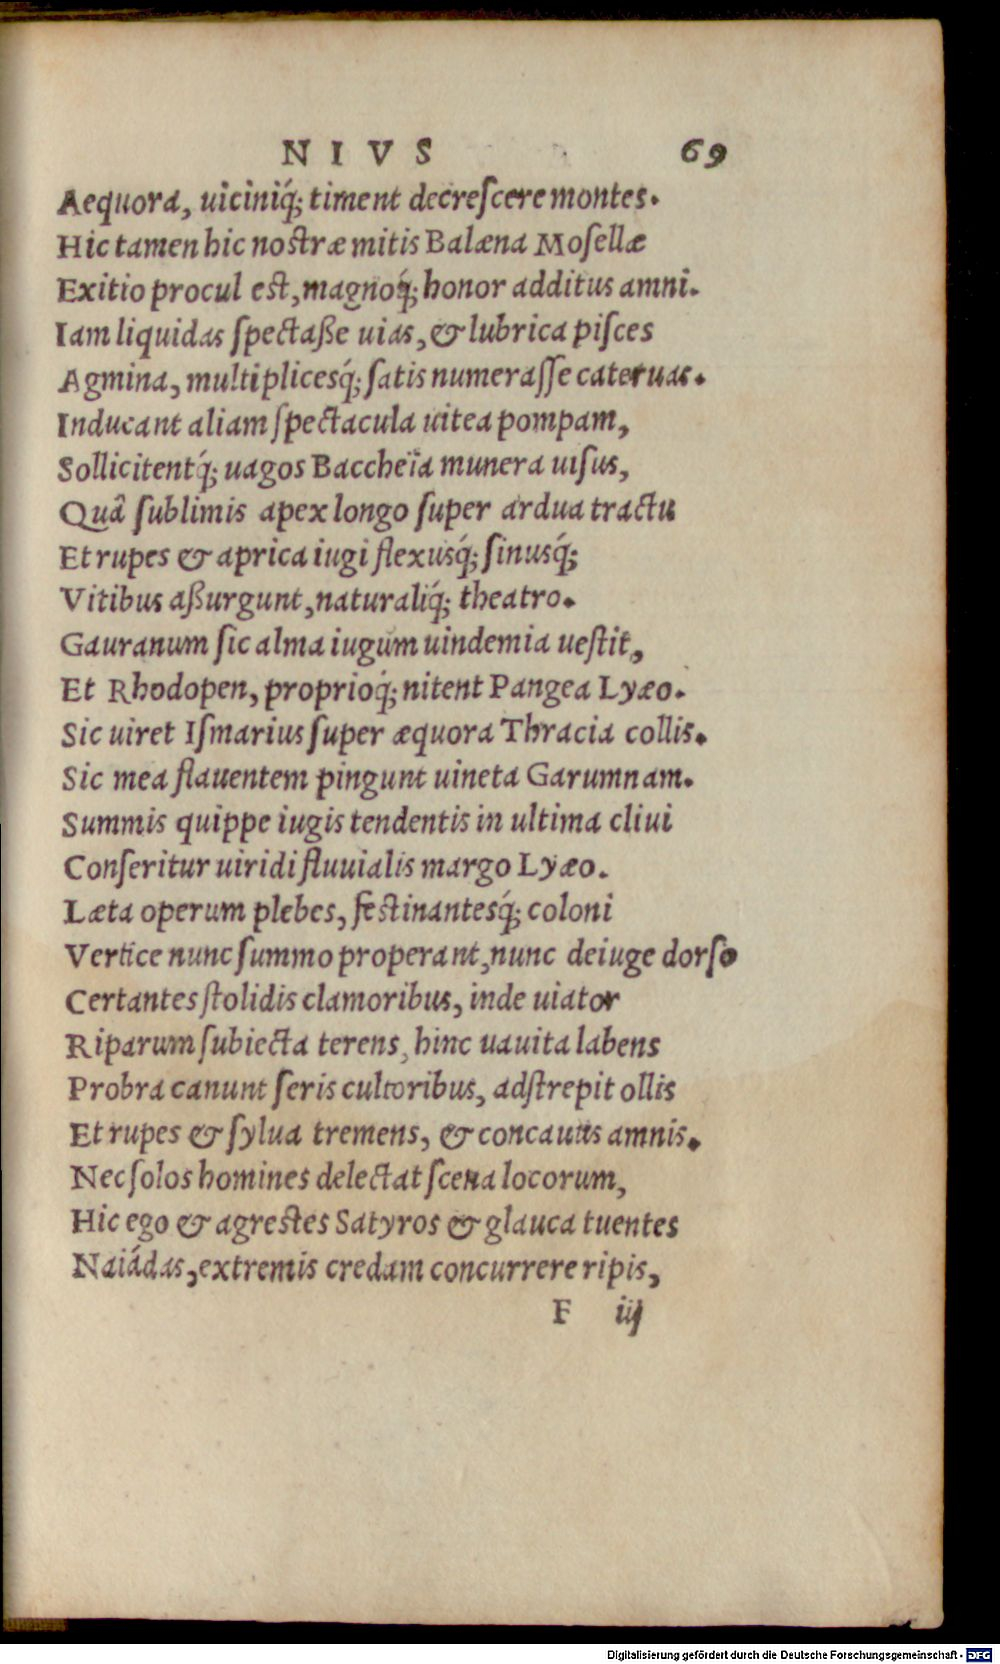 NIVS 69
Aequora, uiciniq́; timent decreſcere montes.
Hic tamen hic noſtræ mitis Balæna Moſellæ
Exitio procul eſt, magnoq́; honor additus amni.
Iam liquidas ſpectaße uias, & lubrica piſces
Agmina, multiplicesq́; ſatis numeraſſe cateruas.
Inducant aliam ſpectacula uitea pompam,
Sollicitentq́; uagos Baccheïa munera uiſus,
Quâ ſublimis apex longo ſuper ardua tractu
Et rupes & aprica iugi flexusq́; ſinusq́;
Vitibus aßurgunt, naturaliq́; theatro.
Gauranum ſic alma iugum uindemia ueſtit,
Et Rhodopen, proprioq́; nitent Pangea Lyæo.
Sic uiret Iſmarius ſuper æquora Thracia collis.
Sic mea flauentem pingunt uineta Garumnam.
Summis quippe iugis tendentis in ultima cliui
Conſeritur uiridi fluuialis margo Lyæo.
Læta operum plebes, feſtinantesq́; coloni
Vertice nunc ſummo properant, nunc deiuge dorſo
Certantes ſtolidis clamoribus, inde uiator
Riparum ſubiecta terens, hinc uauita labens
Probra canunt ſeris cultoribus, adſtrepit ollis
Et rupes & ſylua tremens, & concauus amnis.
Nec ſolos homines delectat ſcena locorum,
Hic ego & agreſtes Satyros & glauca tuentes
Naiádas, extremis credam concurrere ripis,
F iij
Digitalisierung gefördert durch die Deutsche Forschungsgemeinschaft - DFG